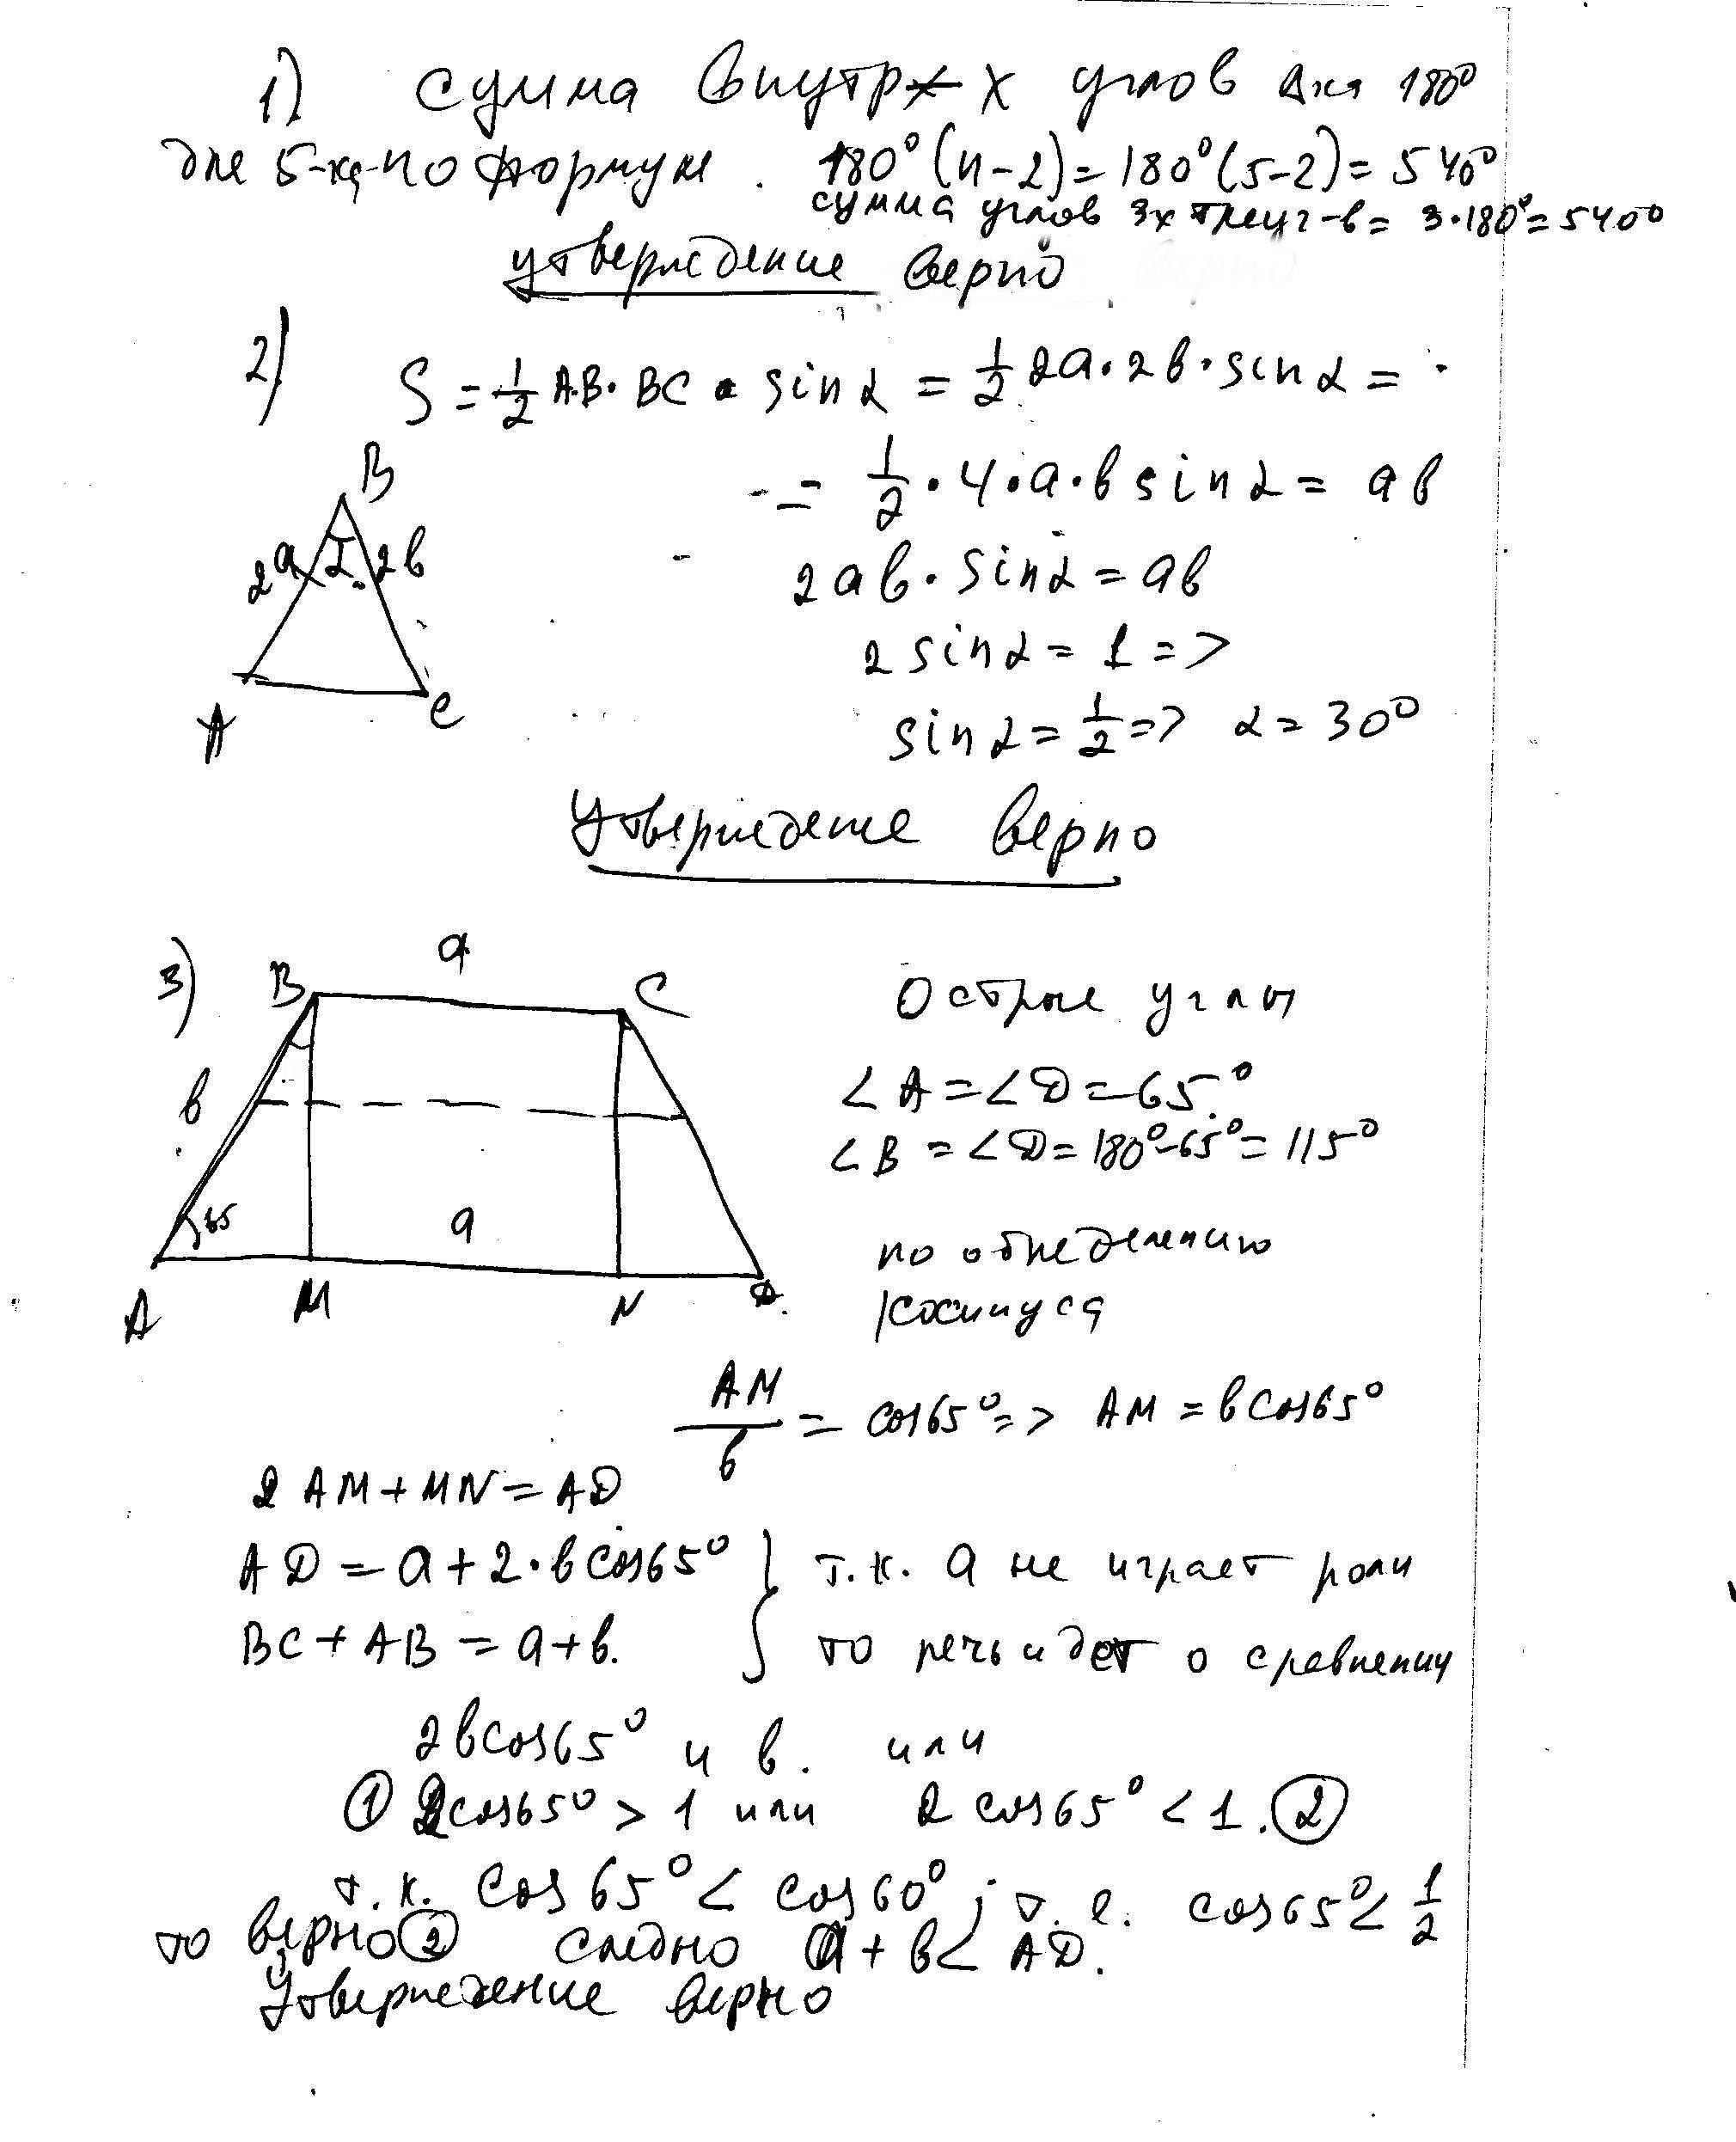 1) Сумма внутр-х углов Δка 180°
для 5-ка-по формуле. 180°(n-2)=180°(5-2)=540°
сумма углов 3х треуг-в = 3·180°=540°
утверждение верно
2) S = 1/2 AB·BC·sin α = 1/2 2a·2b·sin α =
= 1/2·4·a·b sin α = ab
B
2a α 2b
2ab·sin α = ab
2 sin α = 1 =>
A C
sin α = 1/2 => α = 30°
Утверждение верно
3) B a C
Острые углы
b
∠A = ∠D = 65°
∠B = ∠D = 180°-65° = 115°
65 a
по определению
A M N D
косинуса
AM/b = cos65° => AM = b cos65°
2 AM + MN = AD
AD = a + 2·b cos65° } т.к. a не играет роли
BC + AB = a + b. то речь идет о сравнении
2b cos65° и b. или
① 2cos65° > 1 или 2 cos65° < 1. ②
т.к. cos 65° < cos 60°; т. е. cos65° < 1/2
то верно ② следно a + b < AD.
Утверждение верно